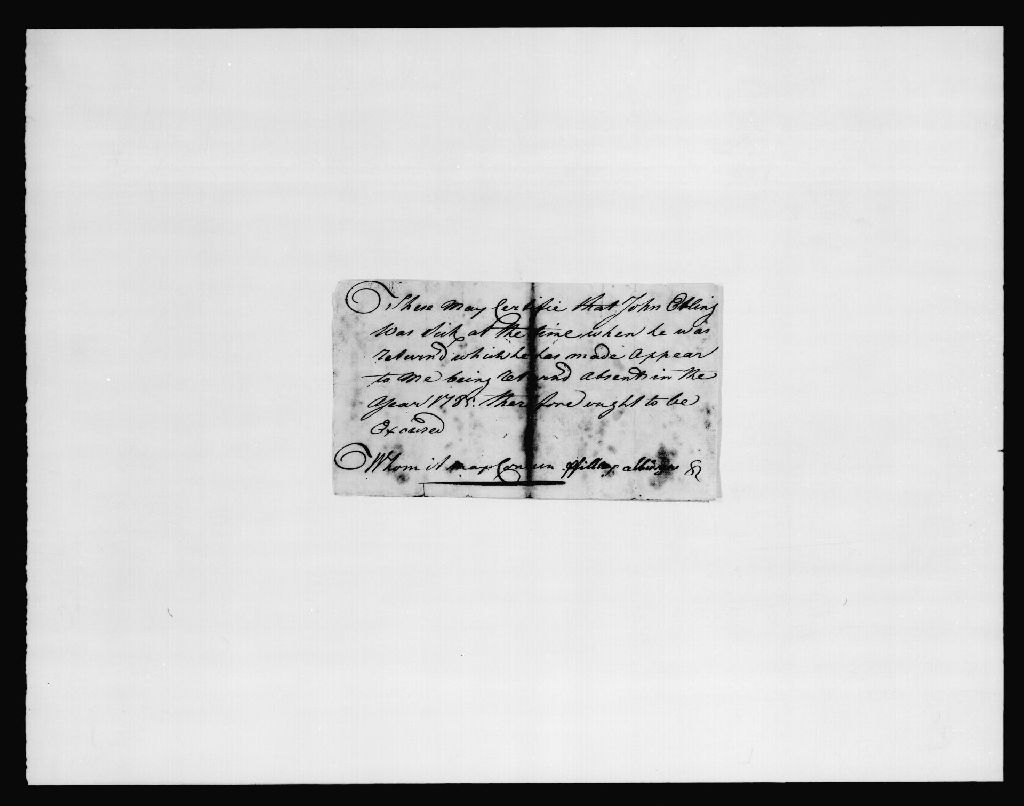 These May Certifie that John Ebling
Was Sick at the time when he was
returnd which he has made Appear
to Me being returnd Absent in the
Year 1785 therefore ought to be
Excused
Whom it may Concern